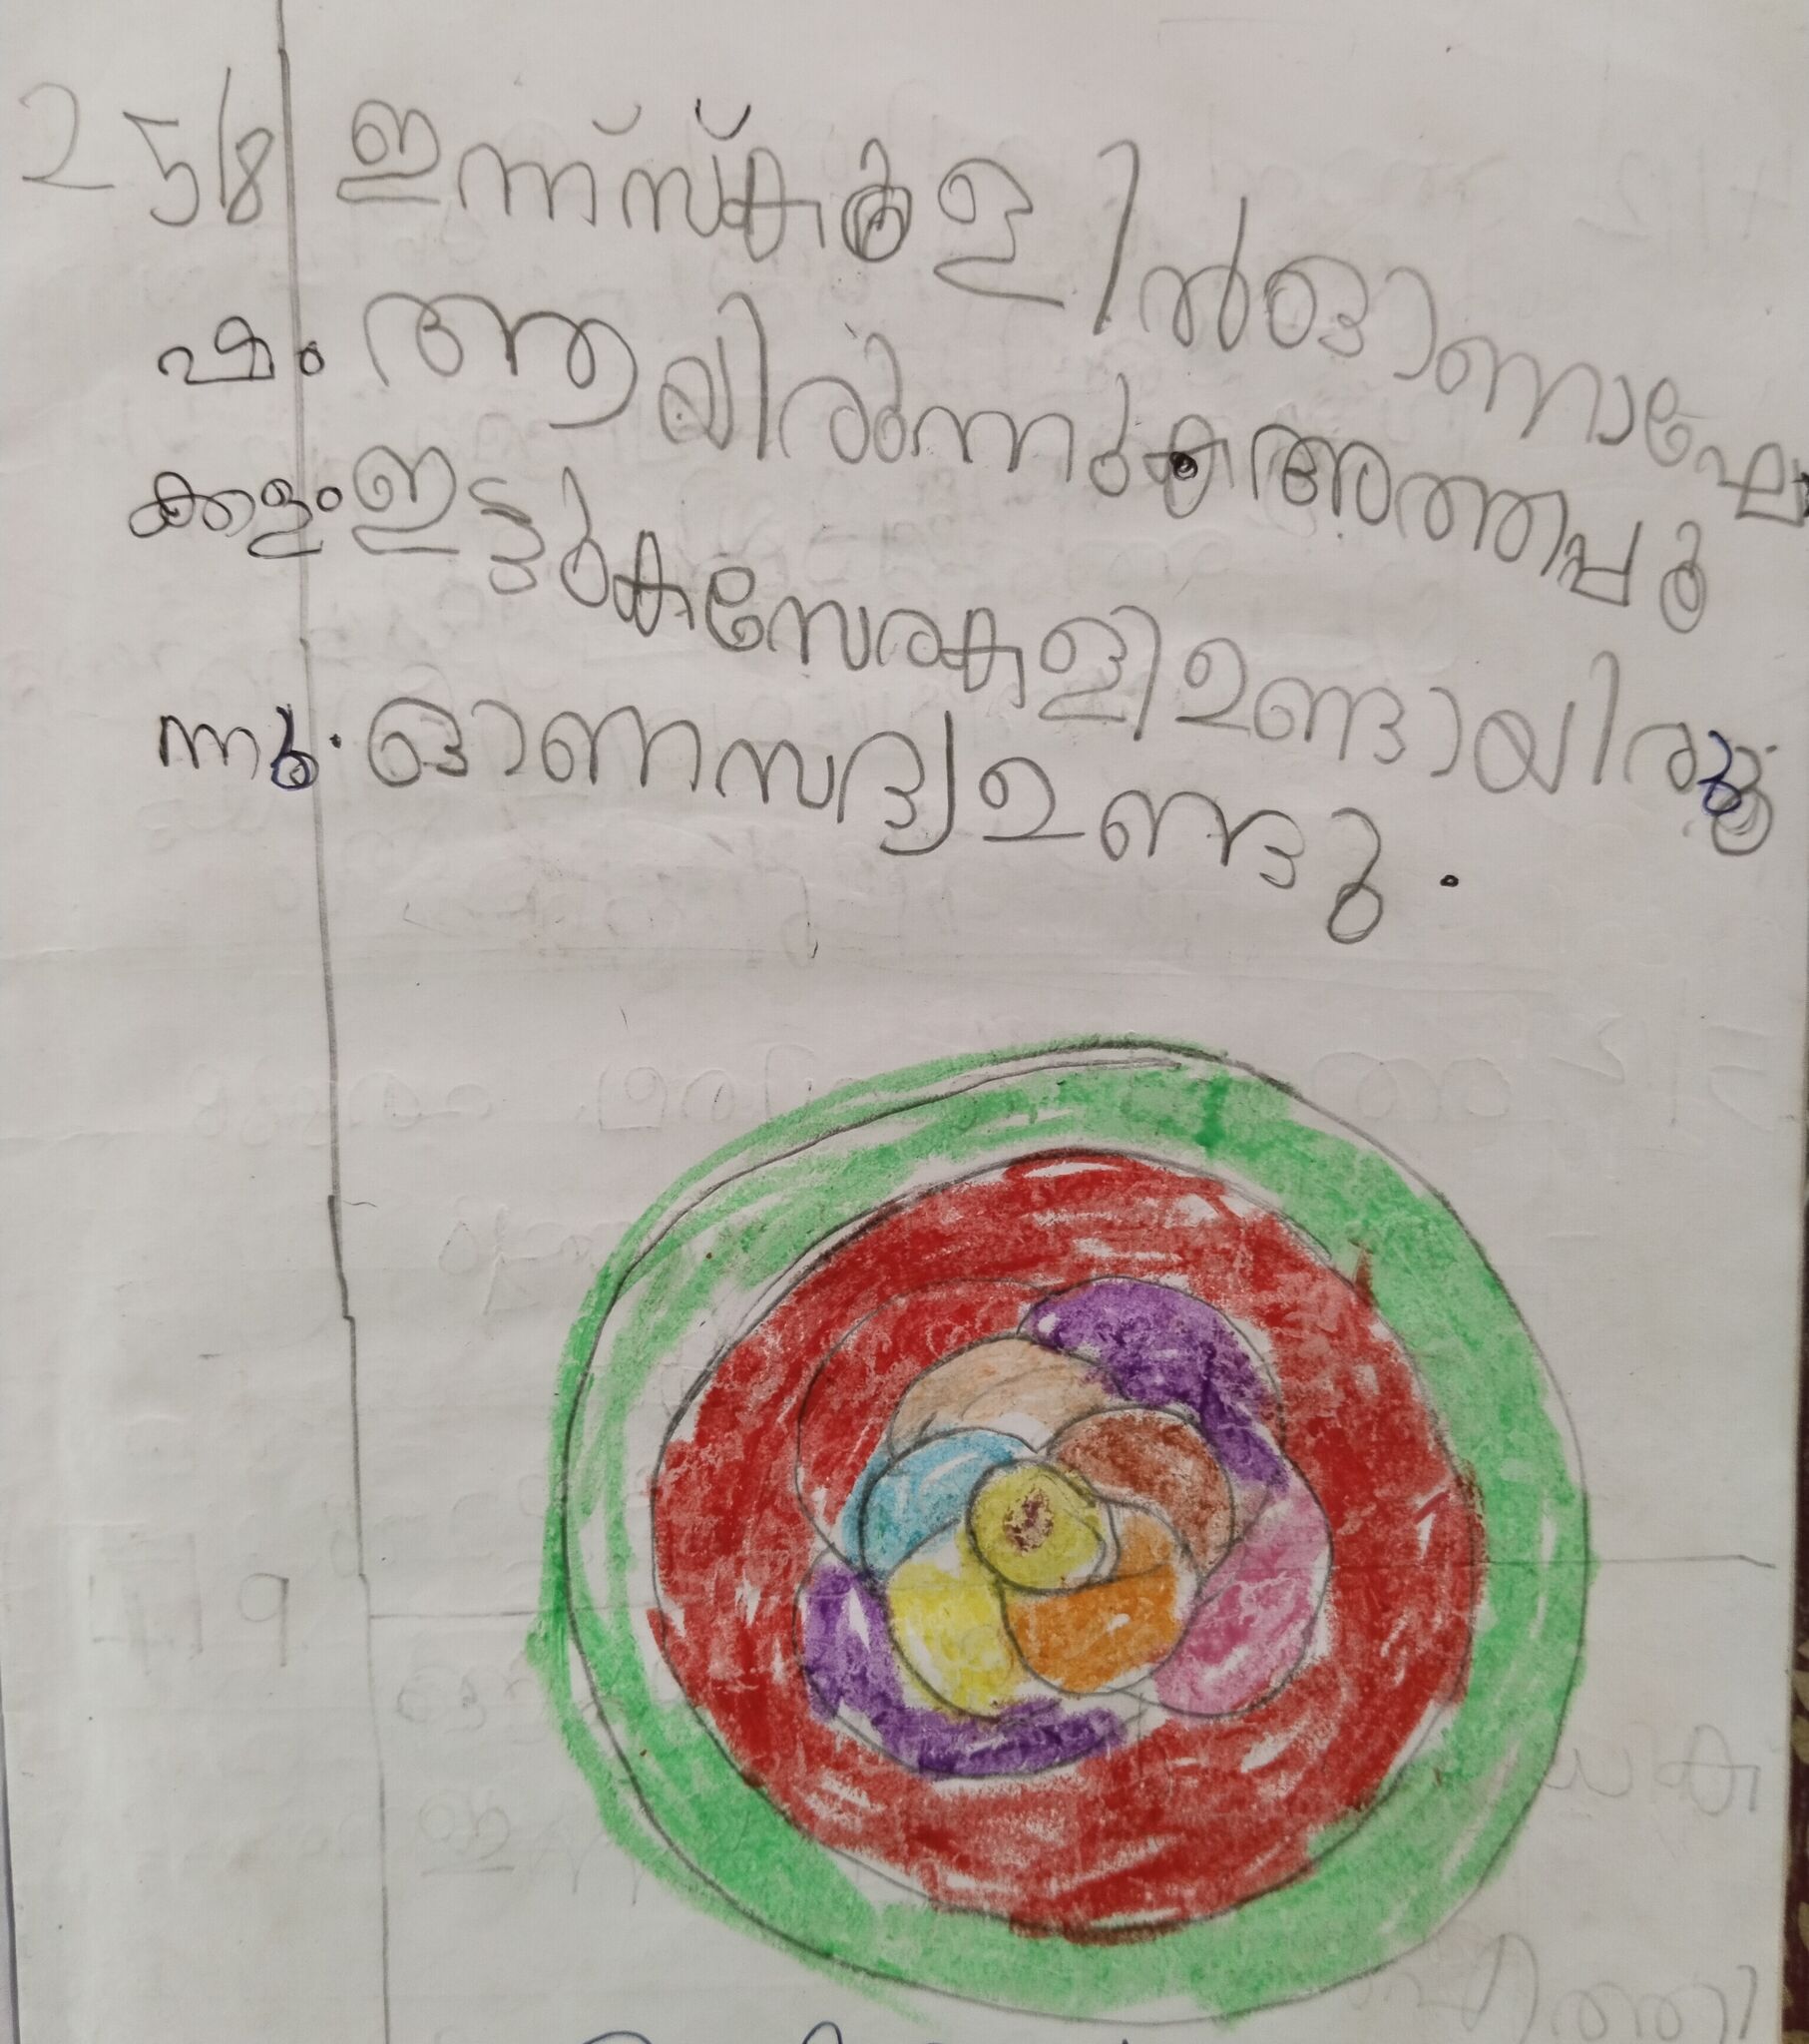 25/8 ഇന്ന് സ്കൂളിൽ ഓണാഘോ
ഷം ആയിരുന്നു അത്തപ്പൂ
ക്കളം ഇട്ടു കസേരകളി ഉണ്ടായിരു
ന്നു. ഓണസദ്യ ഉണ്ടു.